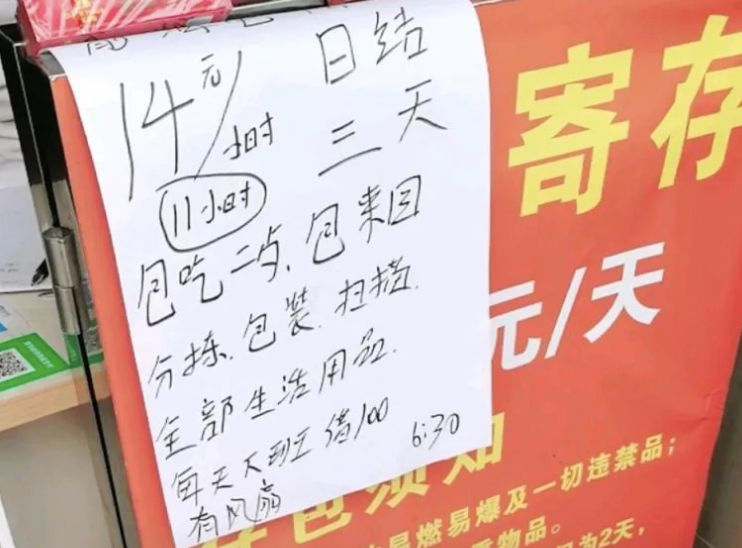 14元/小时
日结
三天
11小时
包吃二歺、包来回
分拣、包装、扫描.
全部生活用品.
每天下班借100
有风扇
6:30
寄存
元/天
须知
易燃易爆及一切违禁品;
物品。
为2天,